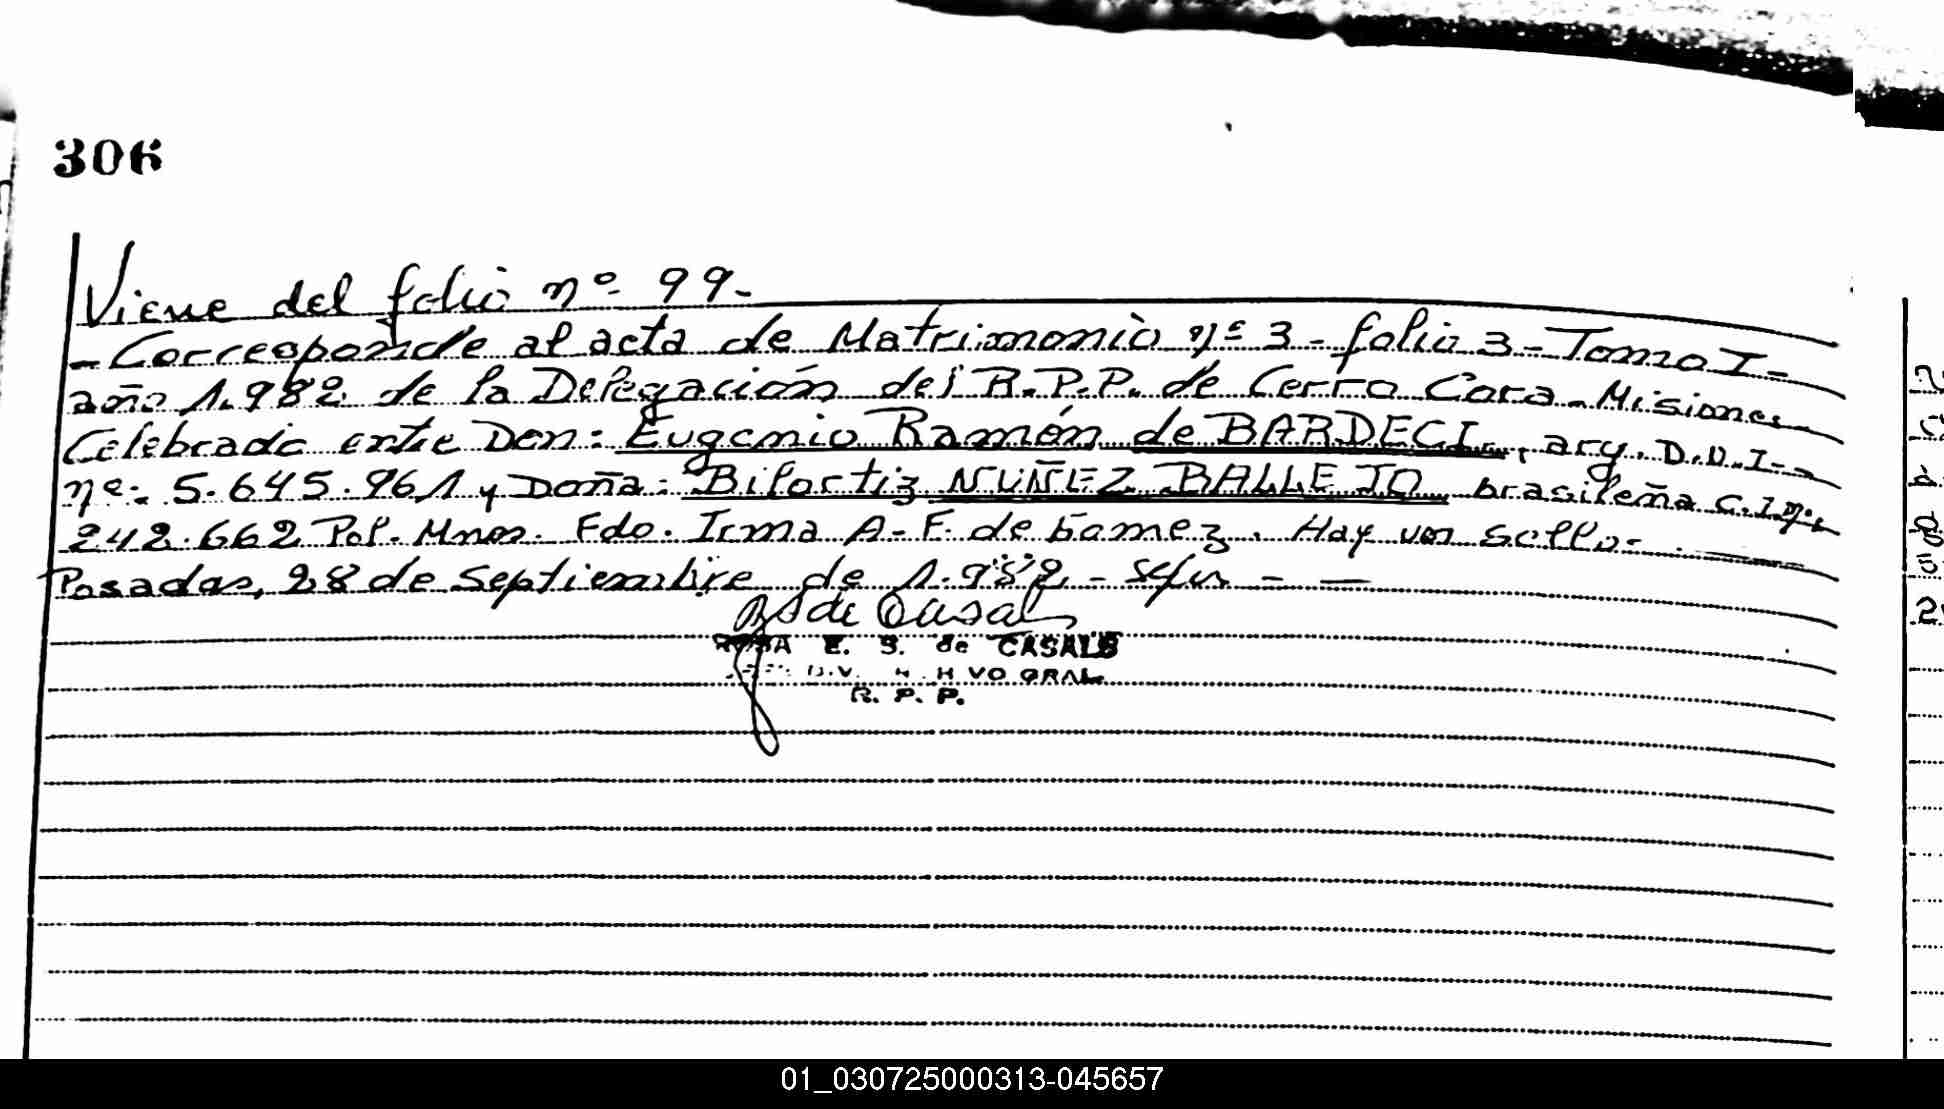 306
Viene del folio nº 99-
- Corresponde al acta de Matrimonio nº 3 - folio 3 - Tomo I -
año 1.982 de la Delegación del R.P.P. de Cerro Cora - Misiones
Celebrado entre Don: Eugenio Ramón de BARDECI, arg. D.N.I -
nº: 5.645.961 y Doña: Bifortiz NUÑEZ BALLEJO brasileña C.I nº
242.662 Pol. Mnes. Fdo. Irma A. F. de Gamez. Hay un sello -
Posadas, 28 de Septiembre de 1.982 -
de Casals
E. S. de CASALS
VO GRAL
R. P. P.
01_030725000313-045657